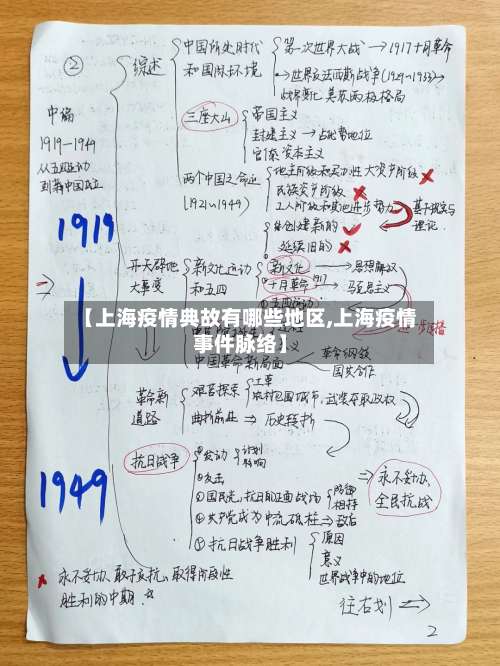 ②
综述
中国所处时代
和国内外环境
第一次世界大战→1917十月革命
→世界反法西斯战争
美苏两极格局
中编
1919-1949
从五四运动
到新中国成立
三座大山
帝国主义
封建主义→占优势地位
官僚资本主义
两个中国之命运
(1921~1949)
地主阶级和买办性大资产阶级 ×
民族资产阶级 ×
工人阶级和其他进步势力
创建新的 ✓
延续旧的 ×
1919
开天辟地
大事变
新文化运动
和五四
新文化→思想解放
十月革命 1917→马克思主义
【上海疫情典故有哪些地区,上海疫情
事件脉络】
中国革命新局面
革命纲领
国共合作
革命新
道路
艰苦探索
农村包围城市，武装夺取政权
曲折前进→历史转折
抗日战争
发动
计划
②反击
国民党，抗日的正面战场
防御
相持
共产党成为中流砥柱→敌后
抗日战争胜利
原因
意义
世界战争中的地位
⇒永不妥协、
全民抗战
1949
永不妥协、敢于反抗，取得阶段性
胜利的中期
往右划⇒
2